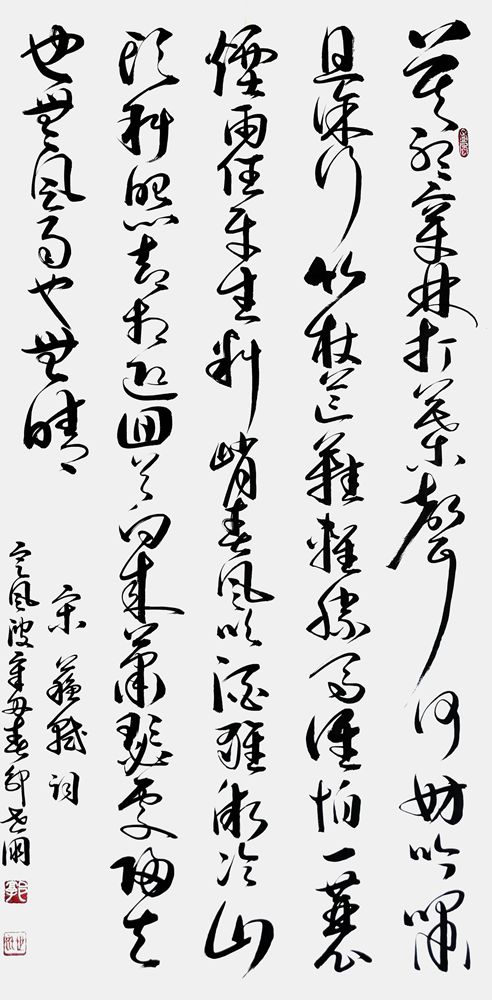 莫聽穿林打葉聲何妨吟嘯
且徐行竹杖芒鞋輕勝馬誰怕一蓑
煙雨任平生料峭春風吹酒醒微冷山
頭斜照却相迎回首向来蕭瑟處歸去
也無風雨也無晴
宋蘇軾詞
定風波辛丑春